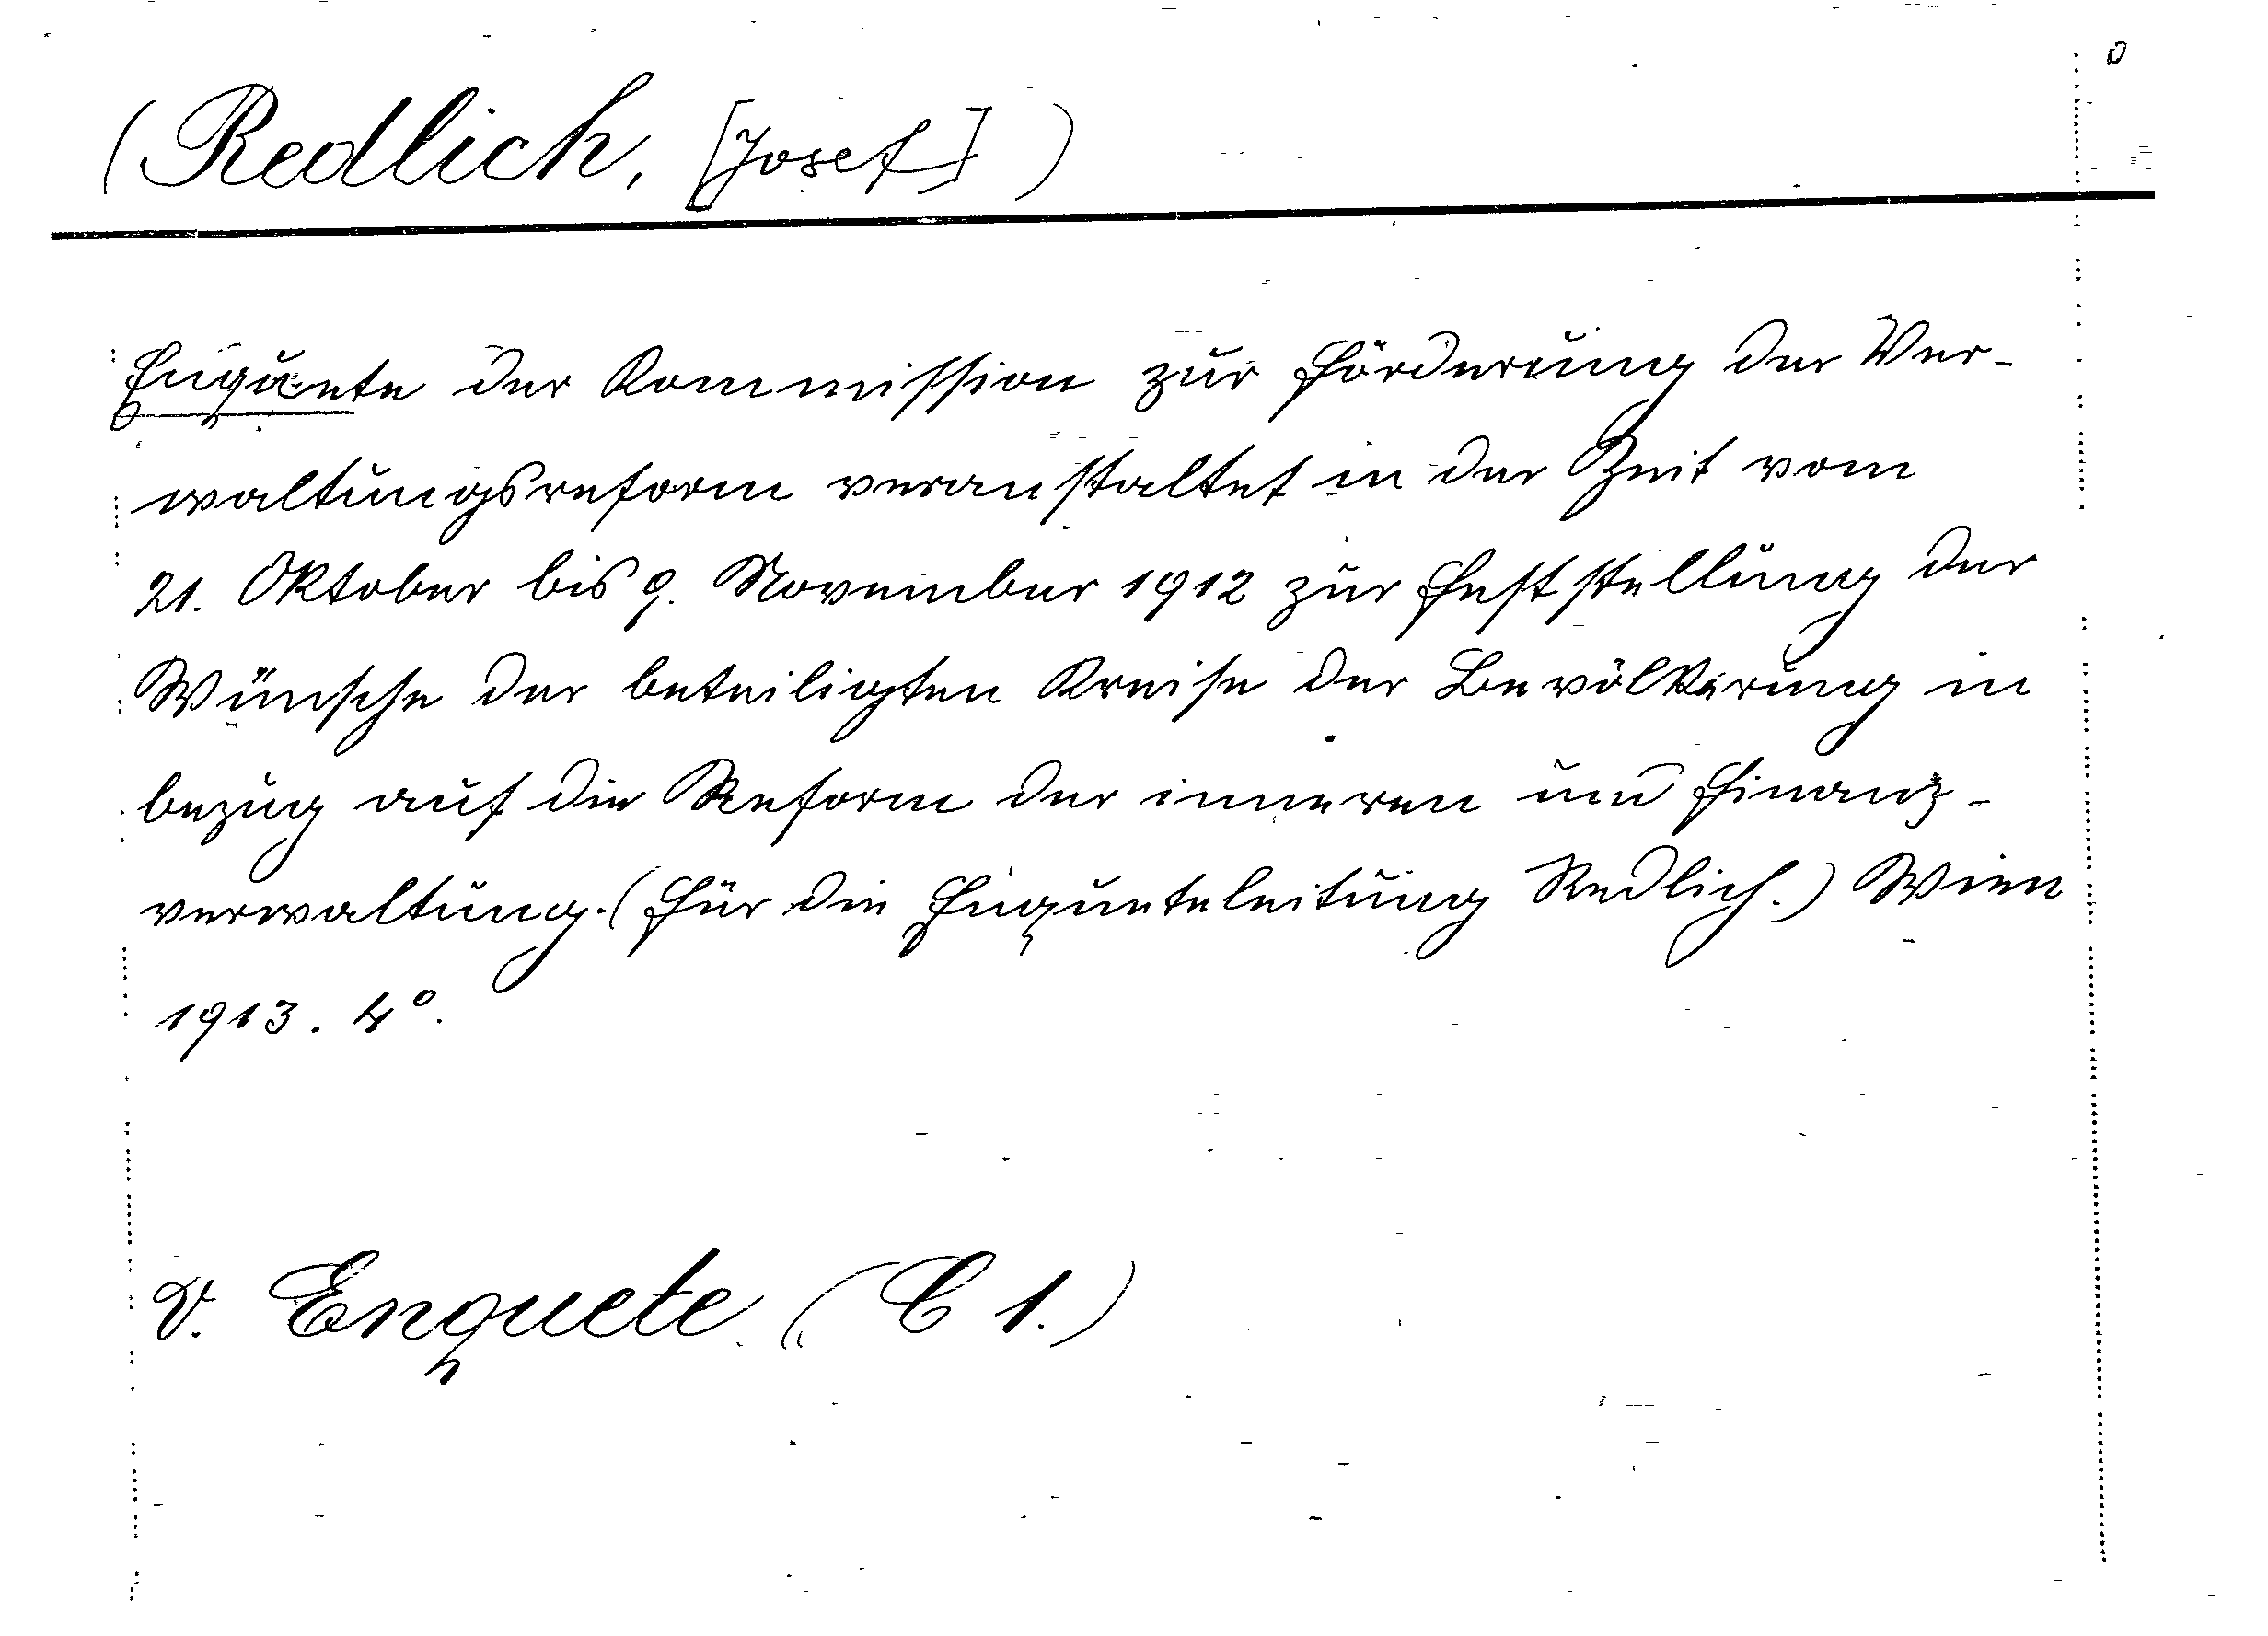 (Redlich, [Josef])
Enquete der Kommission zur Förderung der Ver-
waltungsreform veranstaltet in der Zeit vom
21. Oktober bis 9. November 1912 zur Feststellung der
Wünsche der beteiligten Kreise der Bevölkerung in
bezug auf die Reform der inneren und Finanz-
verwaltung. (Für die Enqueteleitung Redlich.) Wien
1913. 4°.
v. Enquete (C 1.)